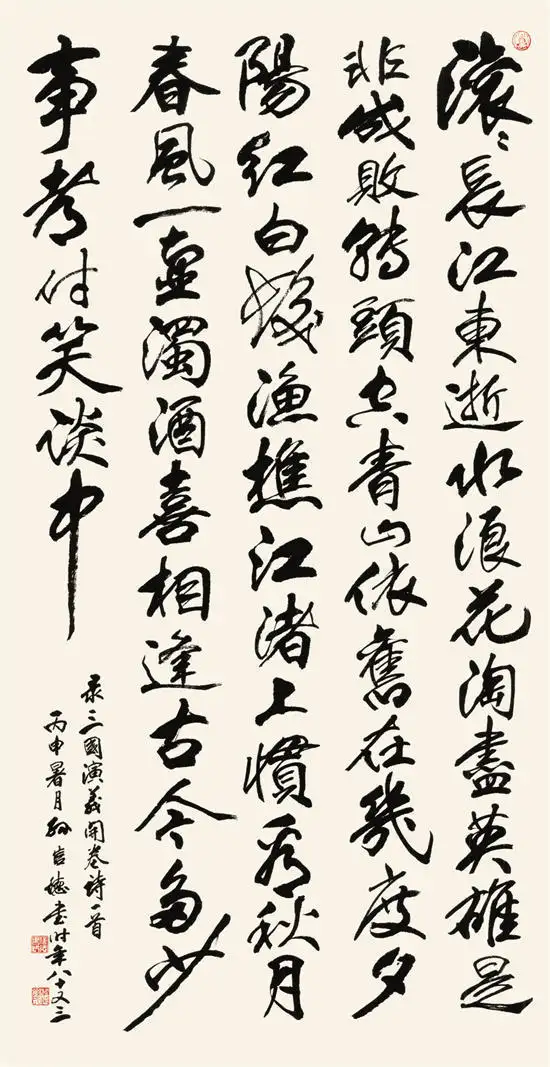 滾〻長江東逝水浪花淘盡英雄是
非成敗轉頭空青山依舊在幾度夕
陽紅白髮漁樵江渚上慣看秋月
春風一壺濁酒喜相逢古今多少
事都付笑谈中
录三國演義開卷詩一首
丙申暑月孫德書時年八十又三